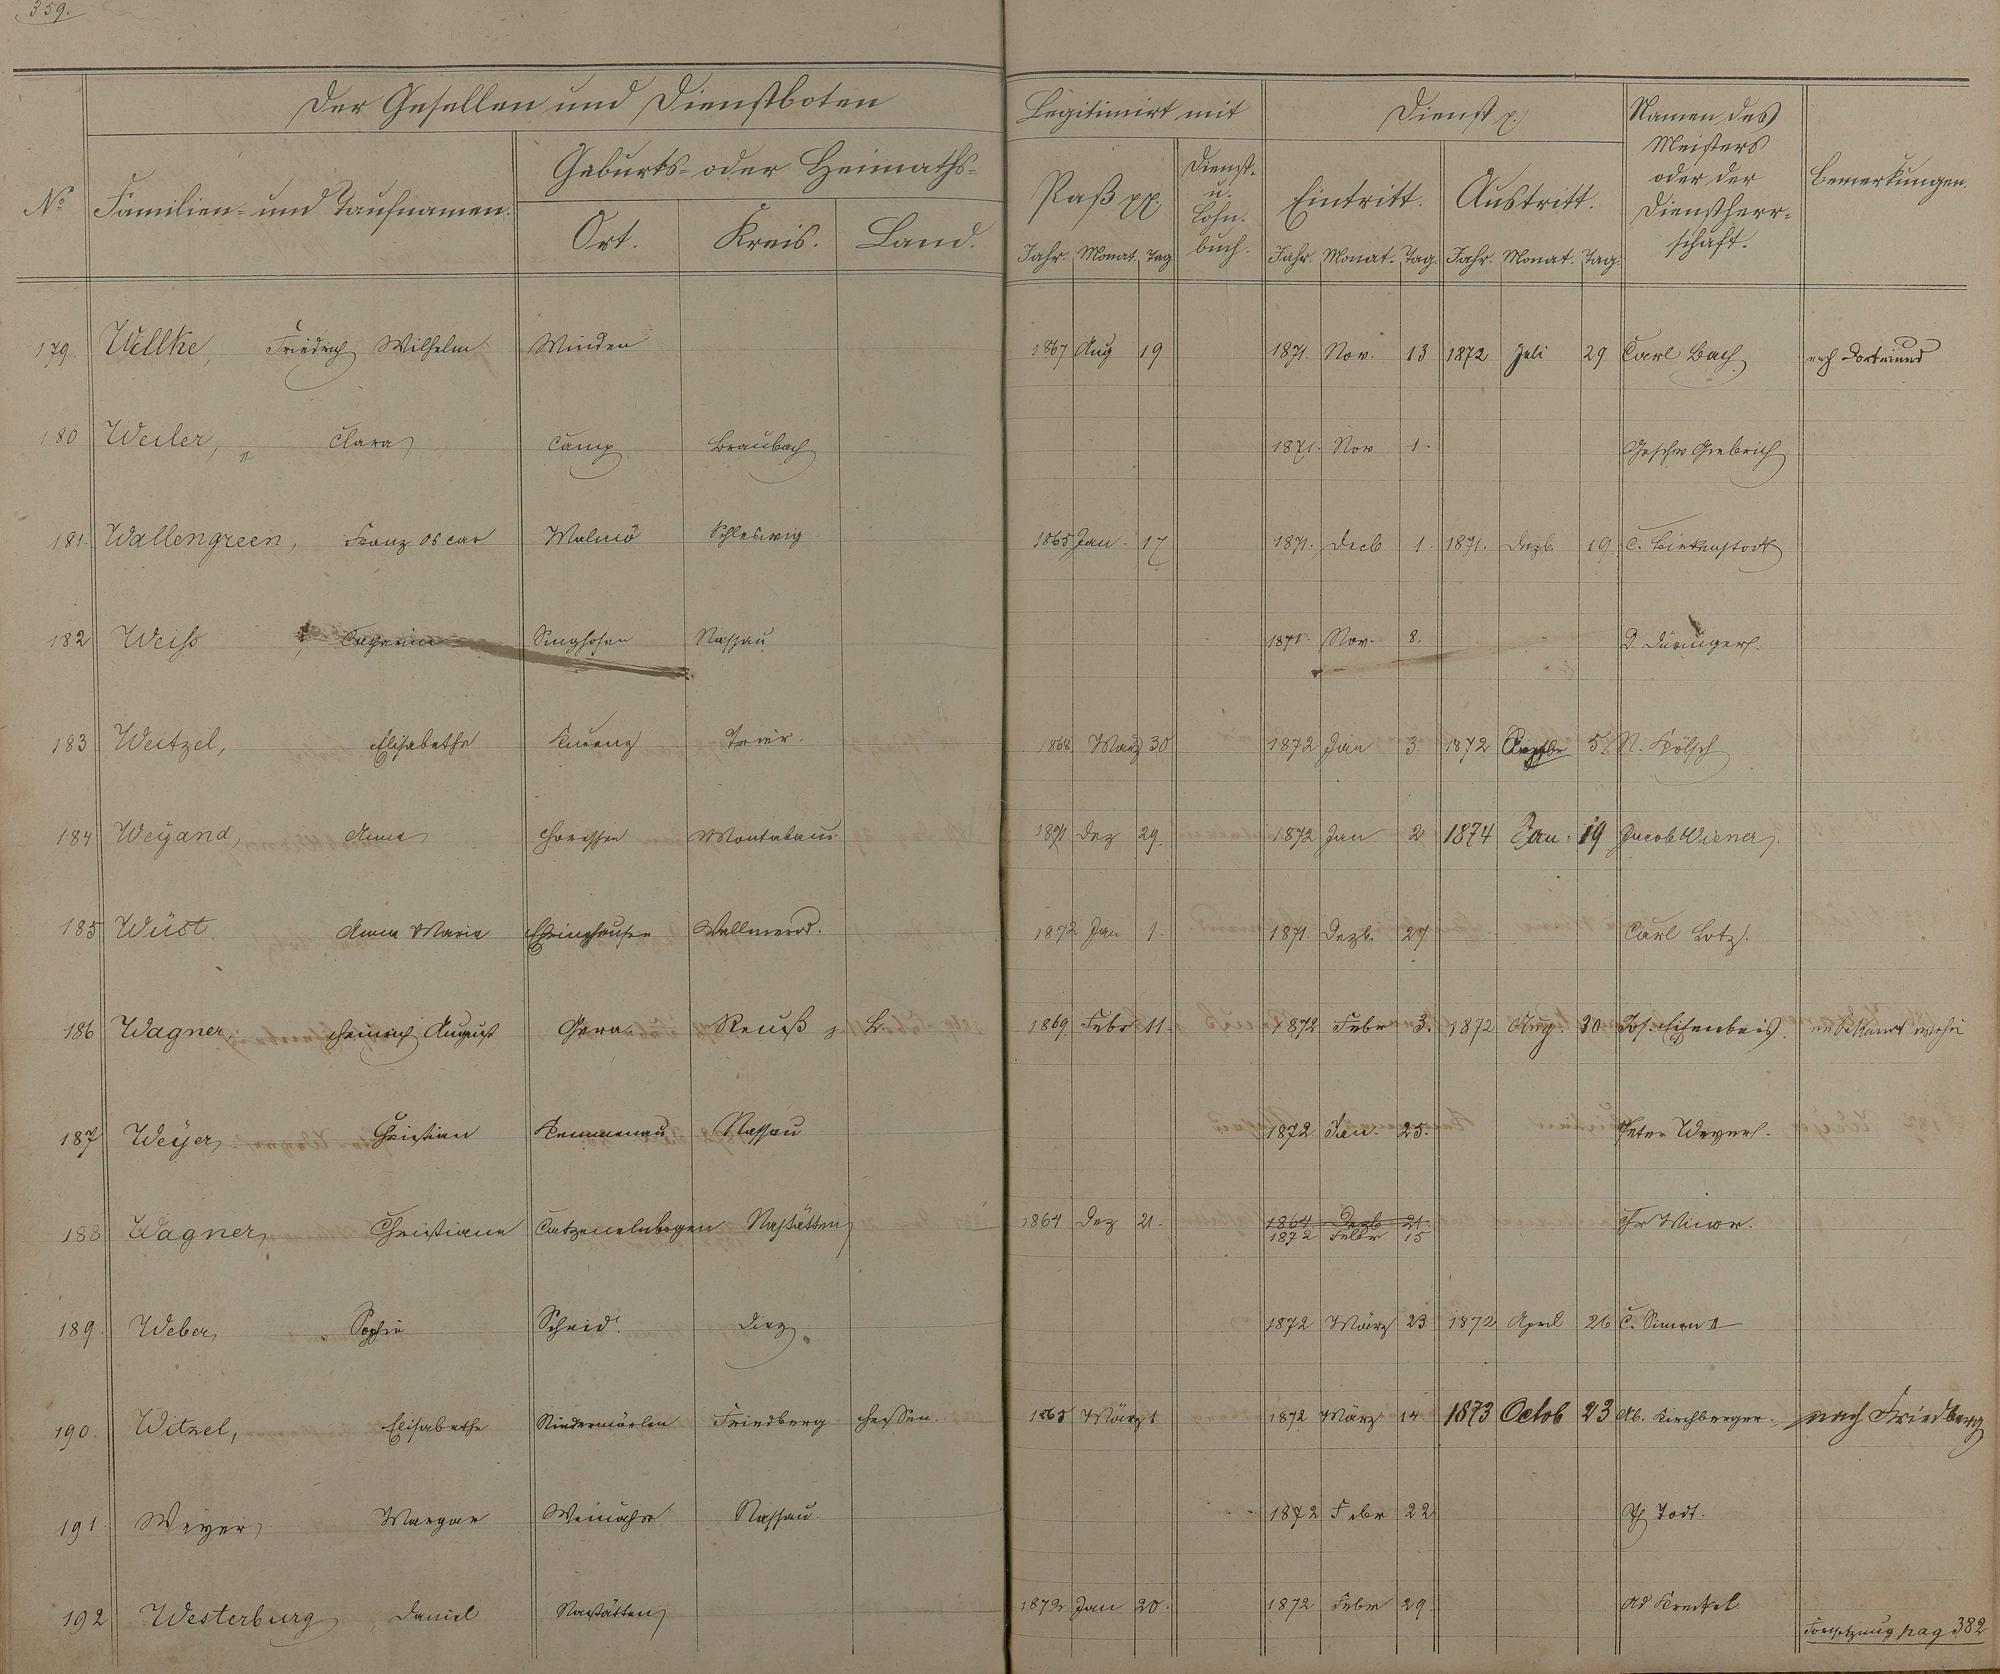 359.
Der Gesellen und Dienstboten
Legitimirt mit
Dienst p.
Namen des Meisters oder der Dienstherrschaft.
Bemerkungen.
No
Familien- und Taufnamen.
Geburts- oder Heimaths-
Ort. Kreis. Land.
Paß pp.
Dienst- u. Lohn- buch.
Eintritt. Austritt.
Jahr. Monat. Tag Jahr. Monat. Tag. Jahr. Monat. Tag.
179. Willke, Friedrich Wilhelm Minden 1867 Aug 19 1871. Nov. 13 1872 Juli 29 Carl Bach nach Dortmund
180 Weiler, Clara Camp Braubach 1871. Nov 1. Geschw Giebrich
181. Wallengreen, Franz Oscar Malmö Schleswig 1865 Jan. 17 1871. Decb 1. 1871. Dezb. 19 C. Birkenstock
182 Weiss Singhofen Nassau 1871. Nov. 8. D. Düringer.
183 Weitzel, Elisabethe Trier. 1868 März 30 1872 Jan 3. 1872 5. N. Kölsch
184 Weyand, Anna Montabaur 1871. Dez 29. 1872 Jan 2 1874 Jan. 19 Jacob Wiener
185 Wüst. Anna Maria Wallmerod. 1872 Jan 1. 1871. Dezb. 27 Carl Lotz.
186 Wagner, Heinrich August Gera. Reuß j. L. 1869 Febr 11. 1872 Febr 3. 1872 Aug. 30 Jos. Eisenbeis. unbekannt wohin
187 Weyer, Christian Kemmenau Nassau 1872 Jan. 25. Peter Weyer.
188 Wagner, Christiane Catzenelnbogen Nastätten 1864 Dez 21. 1864 Dezb 21. Chr Winor.
1872 Febr 15
189. Weber, Sophie Scheid. Diez 1872 März 23 1872 April 26 C. Simon II
190. Witzel, Elisabethe Niedermörlen Friedberg Hessen. 1865 März 1 1872 März 14 1873 Octob 23 Ab. Kirchberger. nach Friedberg
191. Weyer, Margar Weinähr Nassau. 1872 Febr 22 Ph Todt.
192 Westerburg Daniel Nastätten 1872 Jan 20. 1872 Febr 29. Ad Kreckel
Fortsetzung pag 382